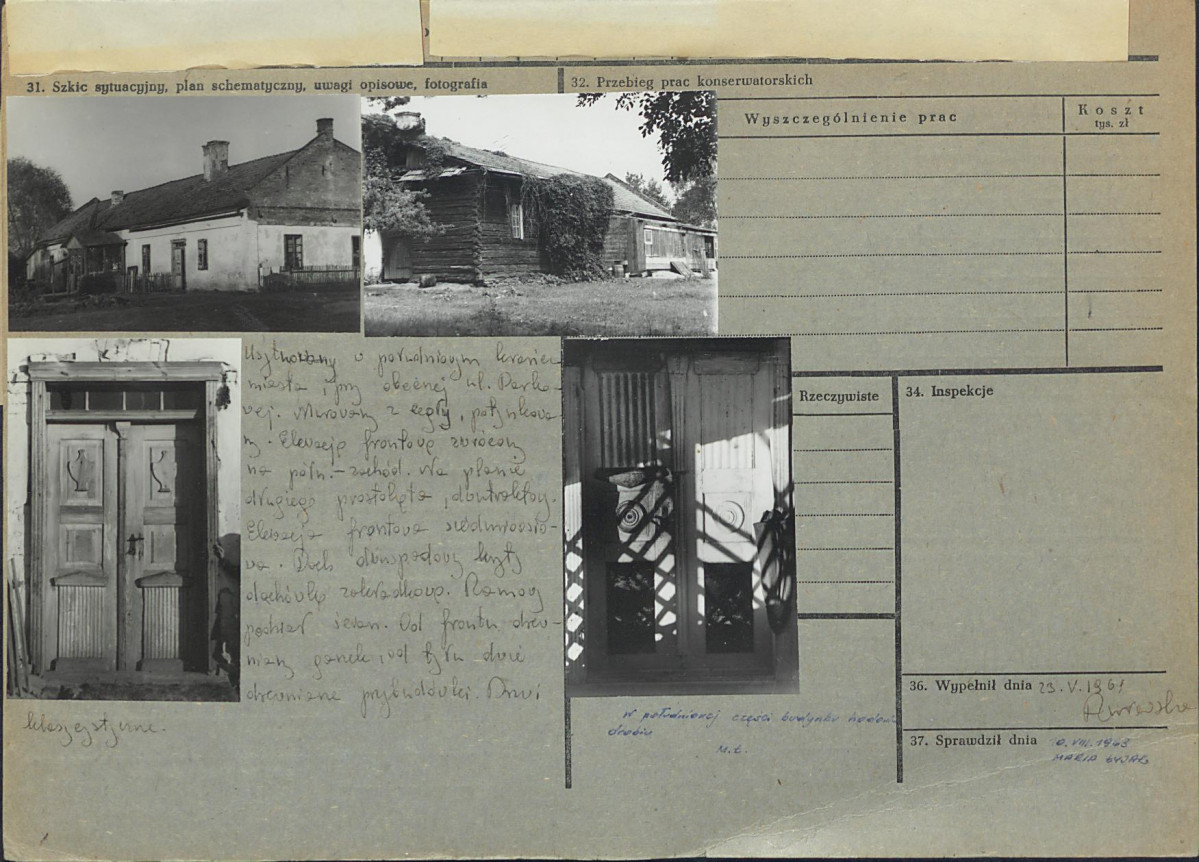 31. Szkic sytuacyjny, plan schematyczny, uwagi opisowe, fotografia
32. Przebieg prac konserwatorskich
Wyszczególnienie prac
Koszt
tys. zł
Usytuowany w południowym krańcu
miasta, przy obecnej ul. Parko-
wej. Murowany z cegły, potynkowa-
ny. Elewacją frontową zwrócony
na półn.-zachód. Na planie
długiego prostokąta, dwutraktowy.
Elewacja frontowa siedmioosio-
wa. Dach dwuspadowy kryty
dachówką zakładkową. Ramowy
podział ścian. Od frontu drew-
niany ganek, od tyłu dwie
drewniane przybudówki. Drzwi
klasycystyczne.
Rzeczywiste
34. Inspekcje
36. Wypełnił dnia 23.V.1961
37. Sprawdził dnia
VIII.1963
MARIA
W południowej części budynku
M.Ł.